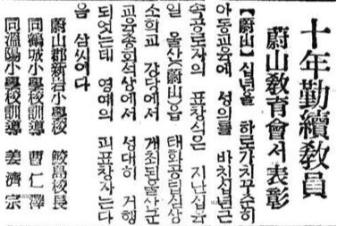 十年勤續教員
蔚山教育會서 表彰
【蔚山】십년을 하로가치꾸준히
아동교육에 성의를 바친십년근
속공로자의 표창식은 지난십륙
일 울산(蔚山)읍 태화공립심상
소학교 강당에서 개최된울산군
교육총회석상에서 성대히 거행
되엇는데 영예의 피표창자는다
음 삼씨이다
蔚山郡新岩小學校 鮫島校長
同 城小學校訓導 曹仁澤
同溫陽小學校訓導 姜濟宗